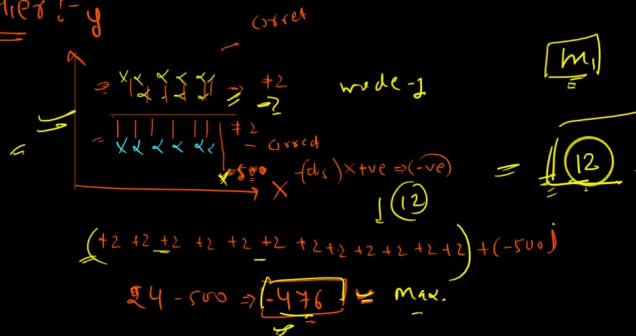 :- y
corret
+2
-2
mode-1
m1
+2
- corred
-500
- (dis) X +ve => (-ve)
= 12
X
↓ 12
(+2 +2 +2 +2 +2 +2 +2 +2 +2 +2 +2 +2) + (-500)
24 - 500 => -476 = Max.